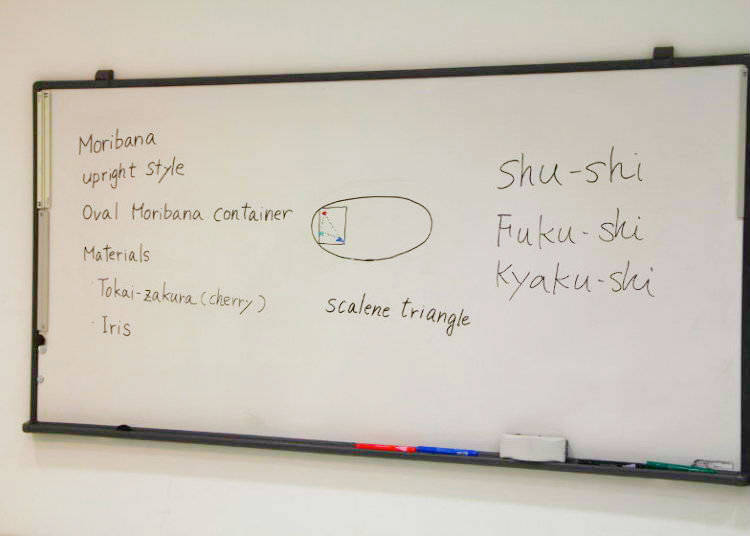 Moribana
upright style
Oval Moribana container
Materials
· Tokai-zakura (cherry)
· Iris
scalene triangle
Shu-shi
Fuku-shi
Kyaku-shi